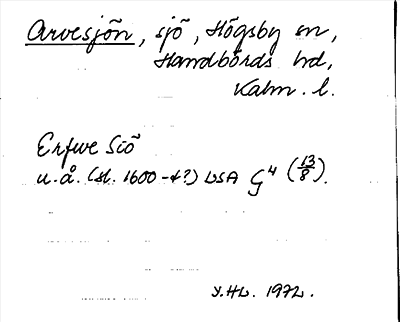 Arvesjön, sjö, Högsby sn,
Handbörds hd,
Kalm. l.
Erfwe Siö
u. å. (sl. 1600-t?) LSA G⁴ (13/8).
Y.HL. 1972.